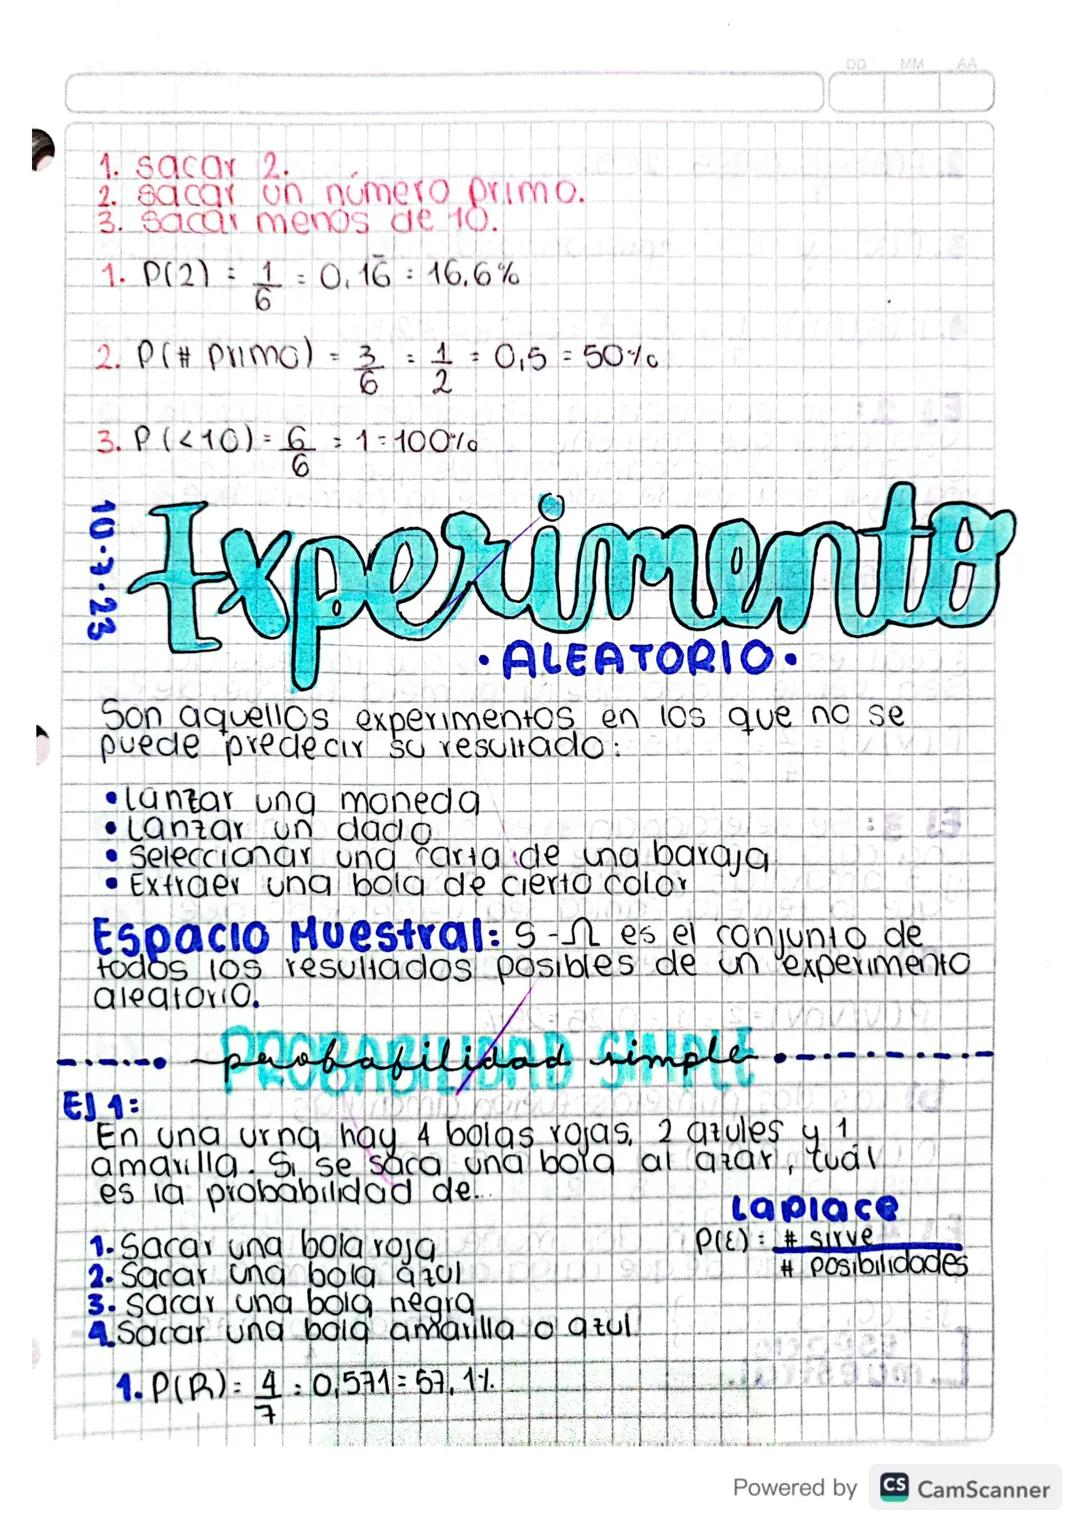 DD MM AA
1. Sacar 2.
2. Sacar un número primo.
3. Sacar menos de 10.
1. P(2) = 1/6 = 0,16̅ = 16.6%
2. P(# primo) = 3/6 = 1/2 = 0,5 = 50%
3. P(<10) = 6/6 = 1 = 100%
10-7-23
Experimento
·ALEATORIO·
Son aquellos experimentos en los que no se
puede predecir su resultado:
•Lanzar una moneda
•Lanzar un dado
•Seleccionar una carta de una baraja
•Extraer una bola de cierto color
Espacio Muestral: S-Ω es el conjunto de
todos los resultados posibles de un experimento
aleatorio.
PROBABILIDAD SIMPLE
probabilidad simple
EJ 1:
En una urna hay 4 bolas rojas, 2 azules y 1
amarilla. Si se saca una bola al azar, cuál
es la probabilidad de...
Laplace
P(E) = # sirve
# posibilidades
1. Sacar una bola roja
2. Sacar una bola azul
3. Sacar una bola negra
4. Sacar una bola amarilla o azul
1. P(R) = 4/7 = 0,571 = 57,1%
Powered by CS CamScanner